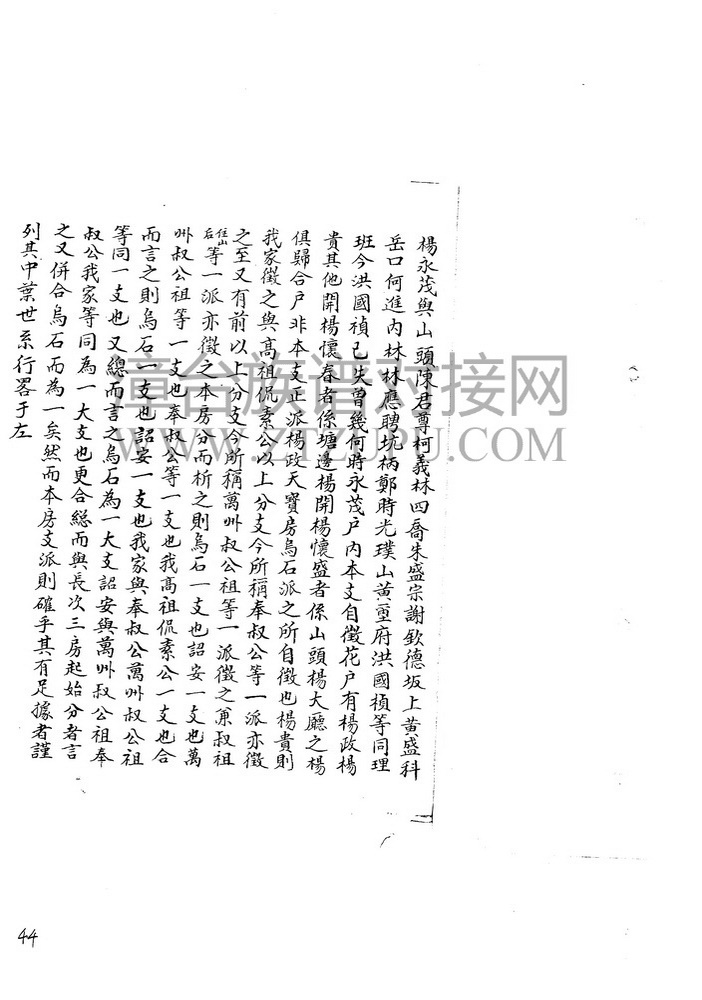 楊永茂與山頭陳君尊柯義林四喬朱盛宗謝欽德坂上黃盛科
岳口何進內林林應聘坑柄鄭時光璞山黃重府洪國禎等同理
班今洪國禎已失曽幾何時永茂户內本支自徵花户有楊政楊
貴其他開楊懷春者係塘邊楊開楊懷盛者係山頭楊大廳之楊
俱歸合户非本支正派楊政天寶房烏石派之所自徵也楊貴則
我家徵之與高祖侃素公以上分支今所稱奉叔公等一派亦徵
之至又有前以上分支今所稱萬卅叔公祖等一派徵之兼叔祖
住山后等一派亦徵之本房分而析之則烏石一支也詔安一支也萬
卅叔公祖等一支也奉叔公等一支也我高祖侃素公一支也合
而言之則烏石一支也詔安一支也我家與奉叔公萬卅叔公祖
等同一支也又總而言之烏石為一大支詔安與萬卅叔公祖奉
叔公我家等同為一大支也更合総而與長次三房起始分者言
之又併合烏石而為一矣然而本房支派則確乎其有足據者謹
列其中葉世系行畧于左
童台族谱对接网
WWW.ZTZUPU.COM
44